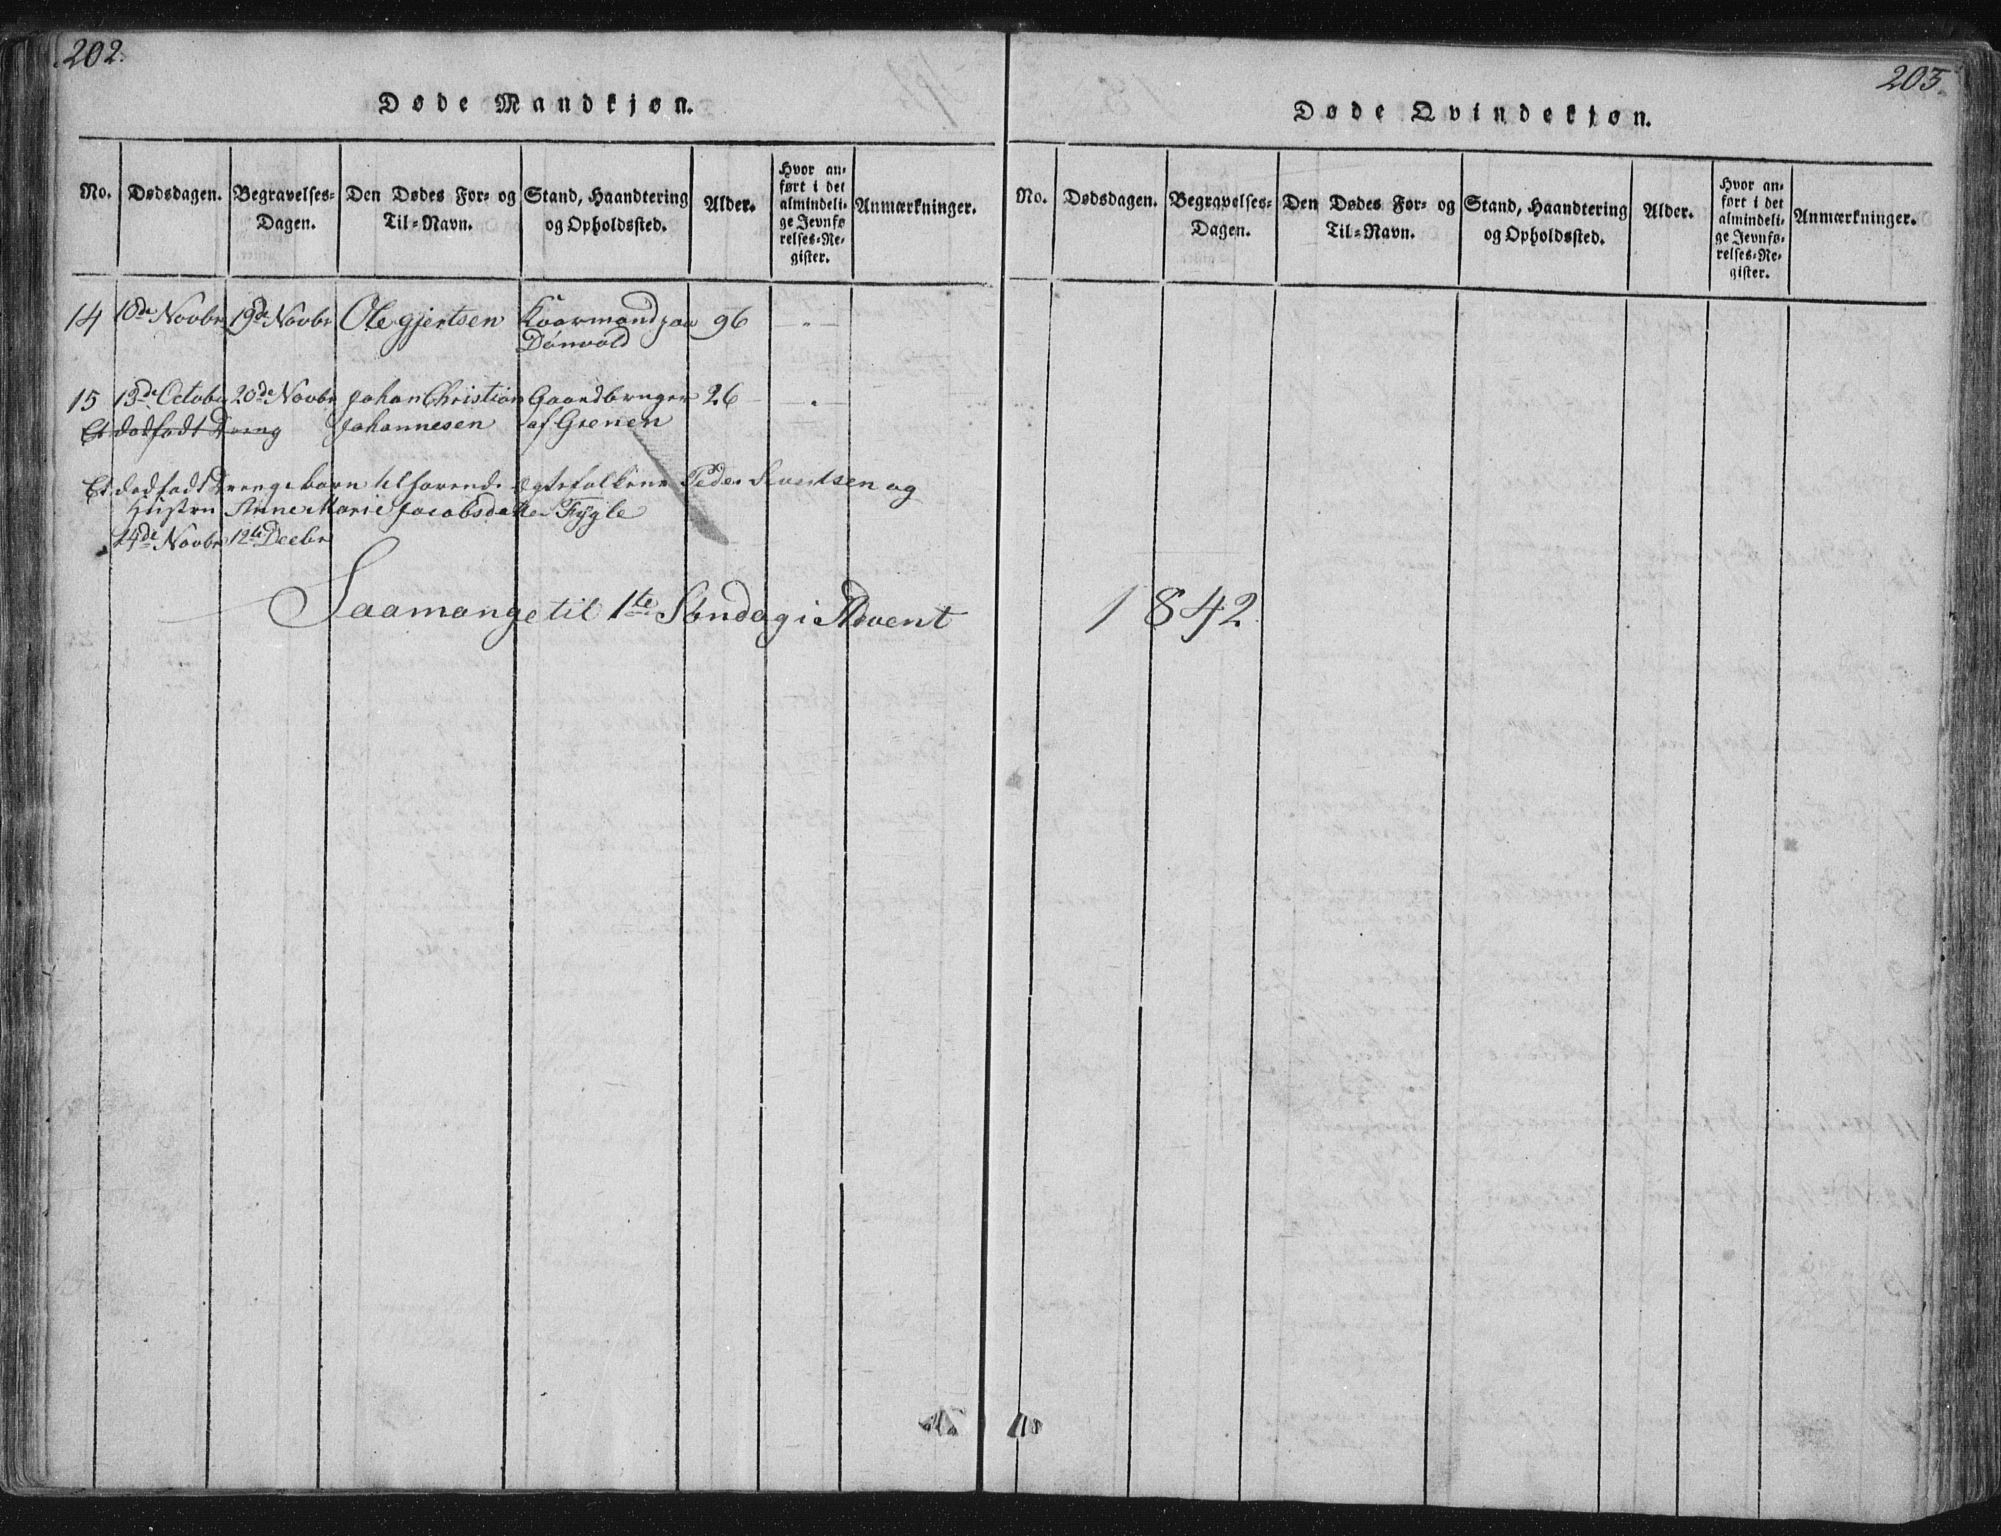 202.
Døde Mandkjøn.
No. Dødsdagen. Begravelses-Dagen. Den Dødes For- og Til-Navn. Stand, Haandtering og Opholdssted. Alder. Hvor anført i det almindelige Jevnførelses-Register. Anmærkninger.
14 10de Novbr 19de Novbr Ole Gjertsen Kaarmand paa 96 - " -
Dønvold
15 13de Octobr 20de Novbr Johan Christian Gaardbruger 26 - " -
Et dødfødt Dreng Johannesen af Grenen
Et dødfødt Drengebarn tilhørende Egtefolkene Peder Sivertsen og
Hustru Anne Marie Jacobsdatter Fygle
24de Novbr 12te Decbr
Saamange til 1te Søndag i Advent 1842.
203.
Døde Qvindekjøn.
No. Dødsdagen. Begravelses-Dagen. Den Dødes For- og Til-Navn. Stand, Haandtering og Opholdssted. Alder. Hvor anført i det almindelige Jevnførelses-Register. Anmærkninger.